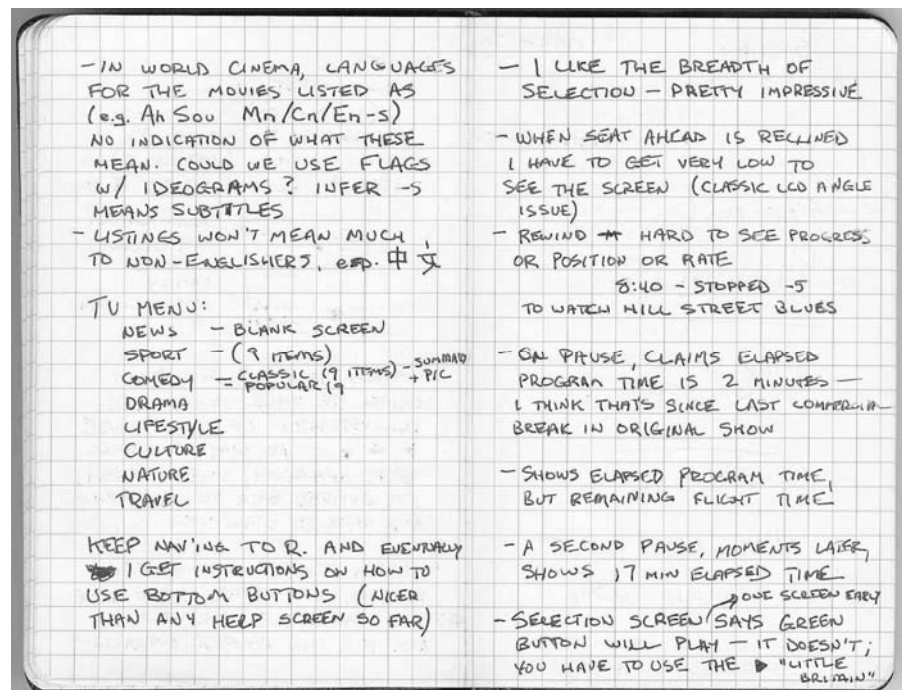 - IN WORLD CINEMA, LANGUAGES
FOR THE MOVIES LISTED AS
(e.g. Ah Sou Mn/Cn/En-s)
NO INDICATION OF WHAT THESE
MEAN. COULD WE USE FLAGS
W/ IDEOGRAMS? INFER -S
MEANS SUBTITLES
- LISTINGS WON'T MEAN MUCH
TO NON-ENGLISHERS, esp. 中文
TV MENU:
NEWS - BLANK SCREEN
SPORT - (9 ITEMS)
COMEDY - CLASSIC (9 ITEMS) - SUMMARY
+ PIC
= POPULAR 19
DRAMA
LIFESTYLE
CULTURE
NATURE
TRAVEL
KEEP NAV'ING TO R. AND EVENTUALLY
I GET INSTRUCTIONS ON HOW TO
USE BOTTOM BUTTONS (NICER
THAN ANY HELP SCREEN SO FAR)
- I LIKE THE BREADTH OF
SELECTION - PRETTY IMPRESSIVE
- WHEN SEAT AHEAD IS RECLINED
I HAVE TO GET VERY LOW TO
SEE THE SCREEN (CLASSIC LCD ANGLE
ISSUE)
- REWIND HARD TO SEE PROGRESS
OR POSITION OR RATE
8:40 - STOPPED -5
TO WATCH HILL STREET BLUES
- ON PAUSE, CLAIMS ELAPSED
PROGRAM TIME IS 2 MINUTES -
I THINK THAT'S SINCE LAST COMMERCIAL
BREAK IN ORIGINAL SHOW
- SHOWS ELAPSED PROGRAM TIME,
BUT REMAINING FLIGHT TIME
- A SECOND PAUSE, MOMENTS LATER,
SHOWS 17 MIN ELAPSED TIME
ONE SCREEN EARLY
- SELECTION SCREEN SAYS GREEN
BUTTON WILL PLAY - IT DOESN'T;
YOU HAVE TO USE THE ▶ "LITTLE
BRITAIN"